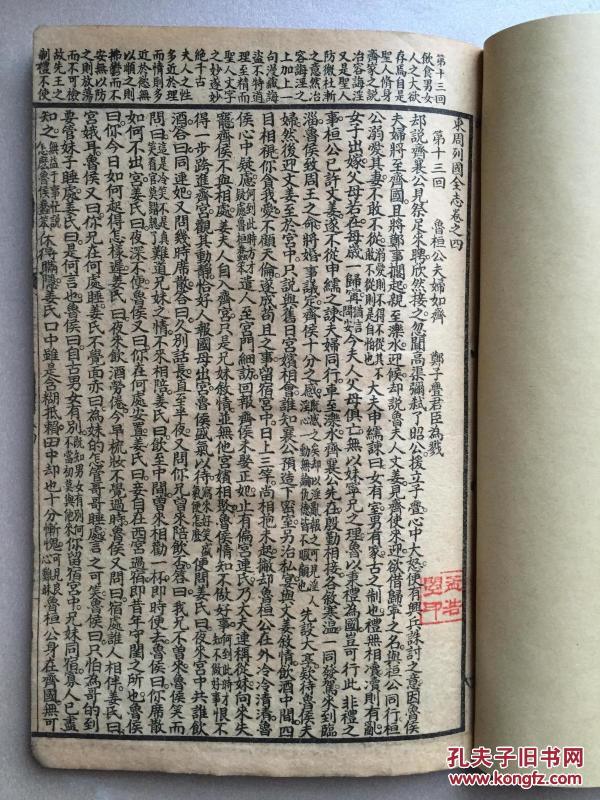 第十三回
飲食男女
人之大欲
存焉自是
聖人脩身
齊家之說
冶容誨淫
又是聖人
防微杜漸
之意然冶
容誨淫之
上加上一
句漫藏誨
盜不特道
理至精而
聖人文字
之妙遂妙
絕千古
夫人之性
多近於理
而情則多
近於慾無
以順之則
拂鬱而不
安無以防
之則放蕩
而不可檢
故先王之
制禮不使
東周列國全志卷之四
第十三回　魯桓公夫婦如齊　鄭子亹君臣為戮
却說齊襄公見祭足來聘欣然接之忽聞高渠彌弒了昭公援立子亹心中大怒便有興兵誅討之意因魯侯
夫婦將至齊國且將鄭事擱起親至濼水迎候却說魯夫人文姜見齊使來迎欲借歸寧之名與桓公同行桓
公溺愛其妻不敢不從大夫申繻諫曰女有室男有家古之制也禮無相瀆瀆則有亂
女子出嫁父母若在每歲一歸寧今夫人父母俱亡無以妹寧兄之理魯以秉禮為國豈可行此非禮之
事桓公已許文姜遂不從申繻之諫夫婦同行車至濼水齊襄公先在殷勤相接各敘寒溫一同發駕來到臨
淄魯侯致周王之命將婚事議定齊侯十分之感激先設大享款待魯侯夫
婦然後迎文姜至於宮中只說與舊日宮嬪相會誰知襄公預造下密室另治私宴與文姜敘情飲酒中間四
目相視你貪我愛不顧天倫遂成苟且之事留宿宮中日上三竿尚相抱未起撇却魯桓公在外冷冷清清魯
侯心中疑慮遣人至宮門細訪回報齊侯未娶正妃止有偏宮連氏乃大夫連稱從妹向來失
寵齊侯不與相處姜夫人自入齊宮只是兄妹敘情並無他宮嬪相聚魯侯情知不做好事恨不
得一步跨進齊宮觀其動靜恰好人報國母出宮魯侯盛氣以待便問姜氏曰夜來宮中共誰飲
酒答曰同連妃又問幾時席散答曰久別話長直至半夜又問你兄曾來陪飲否答曰我兄不曾來魯侯笑而
問曰難道兄妹之情不來相陪姜氏曰飲至中間曾來相勸一杯即時便去魯侯曰你席散
如何不出宮姜氏曰夜深不便魯侯又曰你在何處安置姜氏曰妾自在西宮過宿即昔年守閨之所也魯侯
曰你今日如何起得恁樣遲姜氏曰夜來飲酒勞倦今早梳妝不覺過時魯侯又問曰宿處誰人相伴姜氏曰
宮娥耳魯侯又曰你兄在何處睡姜氏不覺面赤曰為妹的怎管哥哥睡處言之可笑魯侯曰只怕為哥的到
要管妹子睡處姜氏曰是何言也魯侯曰自古男女有別你留宿宮中兄妹同宿寡人已盡
知之休得瞞隱姜氏口中雖是含糊抵賴心中却也十分慚愧魯桓公身在齊國無可
孔夫子旧书网
www.kongfz.com